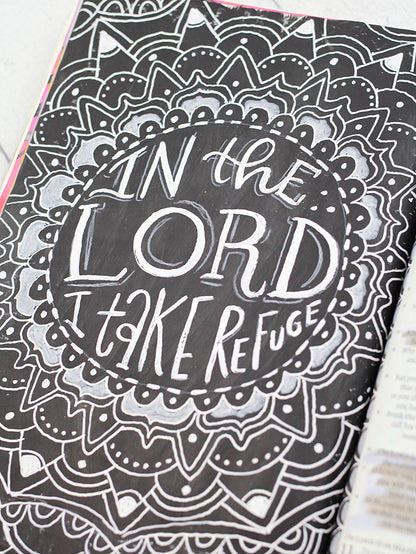 IN the
LORD
I taKE REFUGE